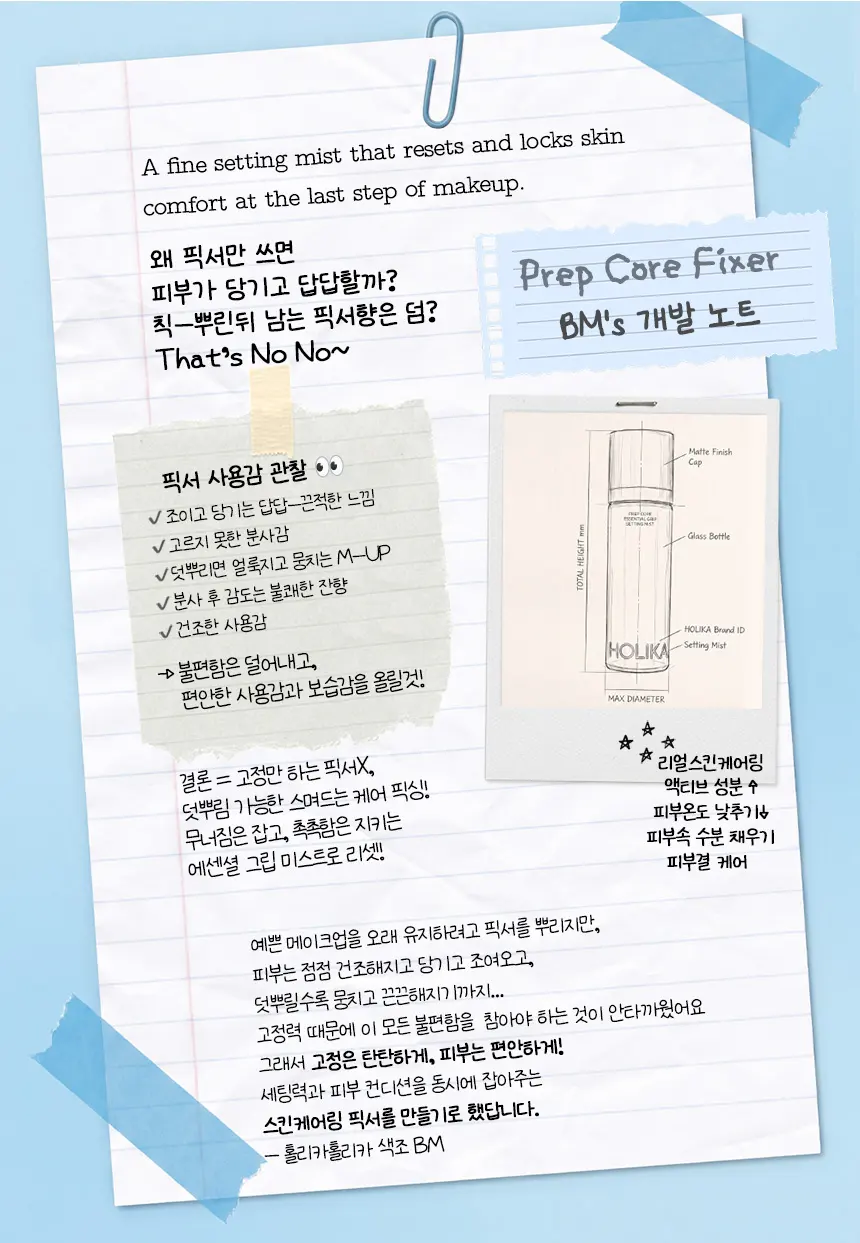 A fine setting mist that resets and locks skin
comfort at the last step of makeup.
왜 픽서만 쓰면
피부가 당기고 답답할까?
칙-뿌린뒤 남는 픽서향은 덤?
That's No No~
Prep Core Fixer
BM's 개발 노트
픽서 사용감 관찰 👀
✓조이고 당기는 답답-끈적한 느낌
✓고르지 못한 분사감
✓덧뿌리면 얼룩지고 뭉치는 M-UP
✓분사 후 감도는 불쾌한 잔향
✓건조한 사용감
→ 불편함은 덜어내고,
편안한 사용감과 보습감을 올릴것!
Matte Finish
Cap
PREP CORE
ESSENTIAL GRIP
SETTING MIST
Glass Bottle
TOTAL HEIGHT mm
HOLIKA Brand ID
Setting Mist
HOLIKA
MAX DIAMETER
리얼스킨케어링
액티브 성분↑
피부온도 낮추기↓
피부속 수분 채우기
피부결 케어
결론 = 고정만 하는 픽서X,
덧뿌림 가능한 스며드는 케어 픽싱!
무너짐은 잡고, 촉촉함은 지키는
에센셜 그립 미스트로 리셋!
예쁜 메이크업을 오래 유지하려고 픽서를 뿌리지만,
피부는 점점 건조해지고 당기고 조여오고,
덧뿌릴수록 뭉치고 끈끈해지기까지...
고정력 때문에 이 모든 불편함을 참아야 하는 것이 안타까웠어요
그래서 고정은 탄탄하게, 피부는 편안하게!
세팅력과 피부 컨디션을 동시에 잡아주는
스킨케어링 픽서를 만들기로 했답니다.
- 홀리카홀리카 색조 BM